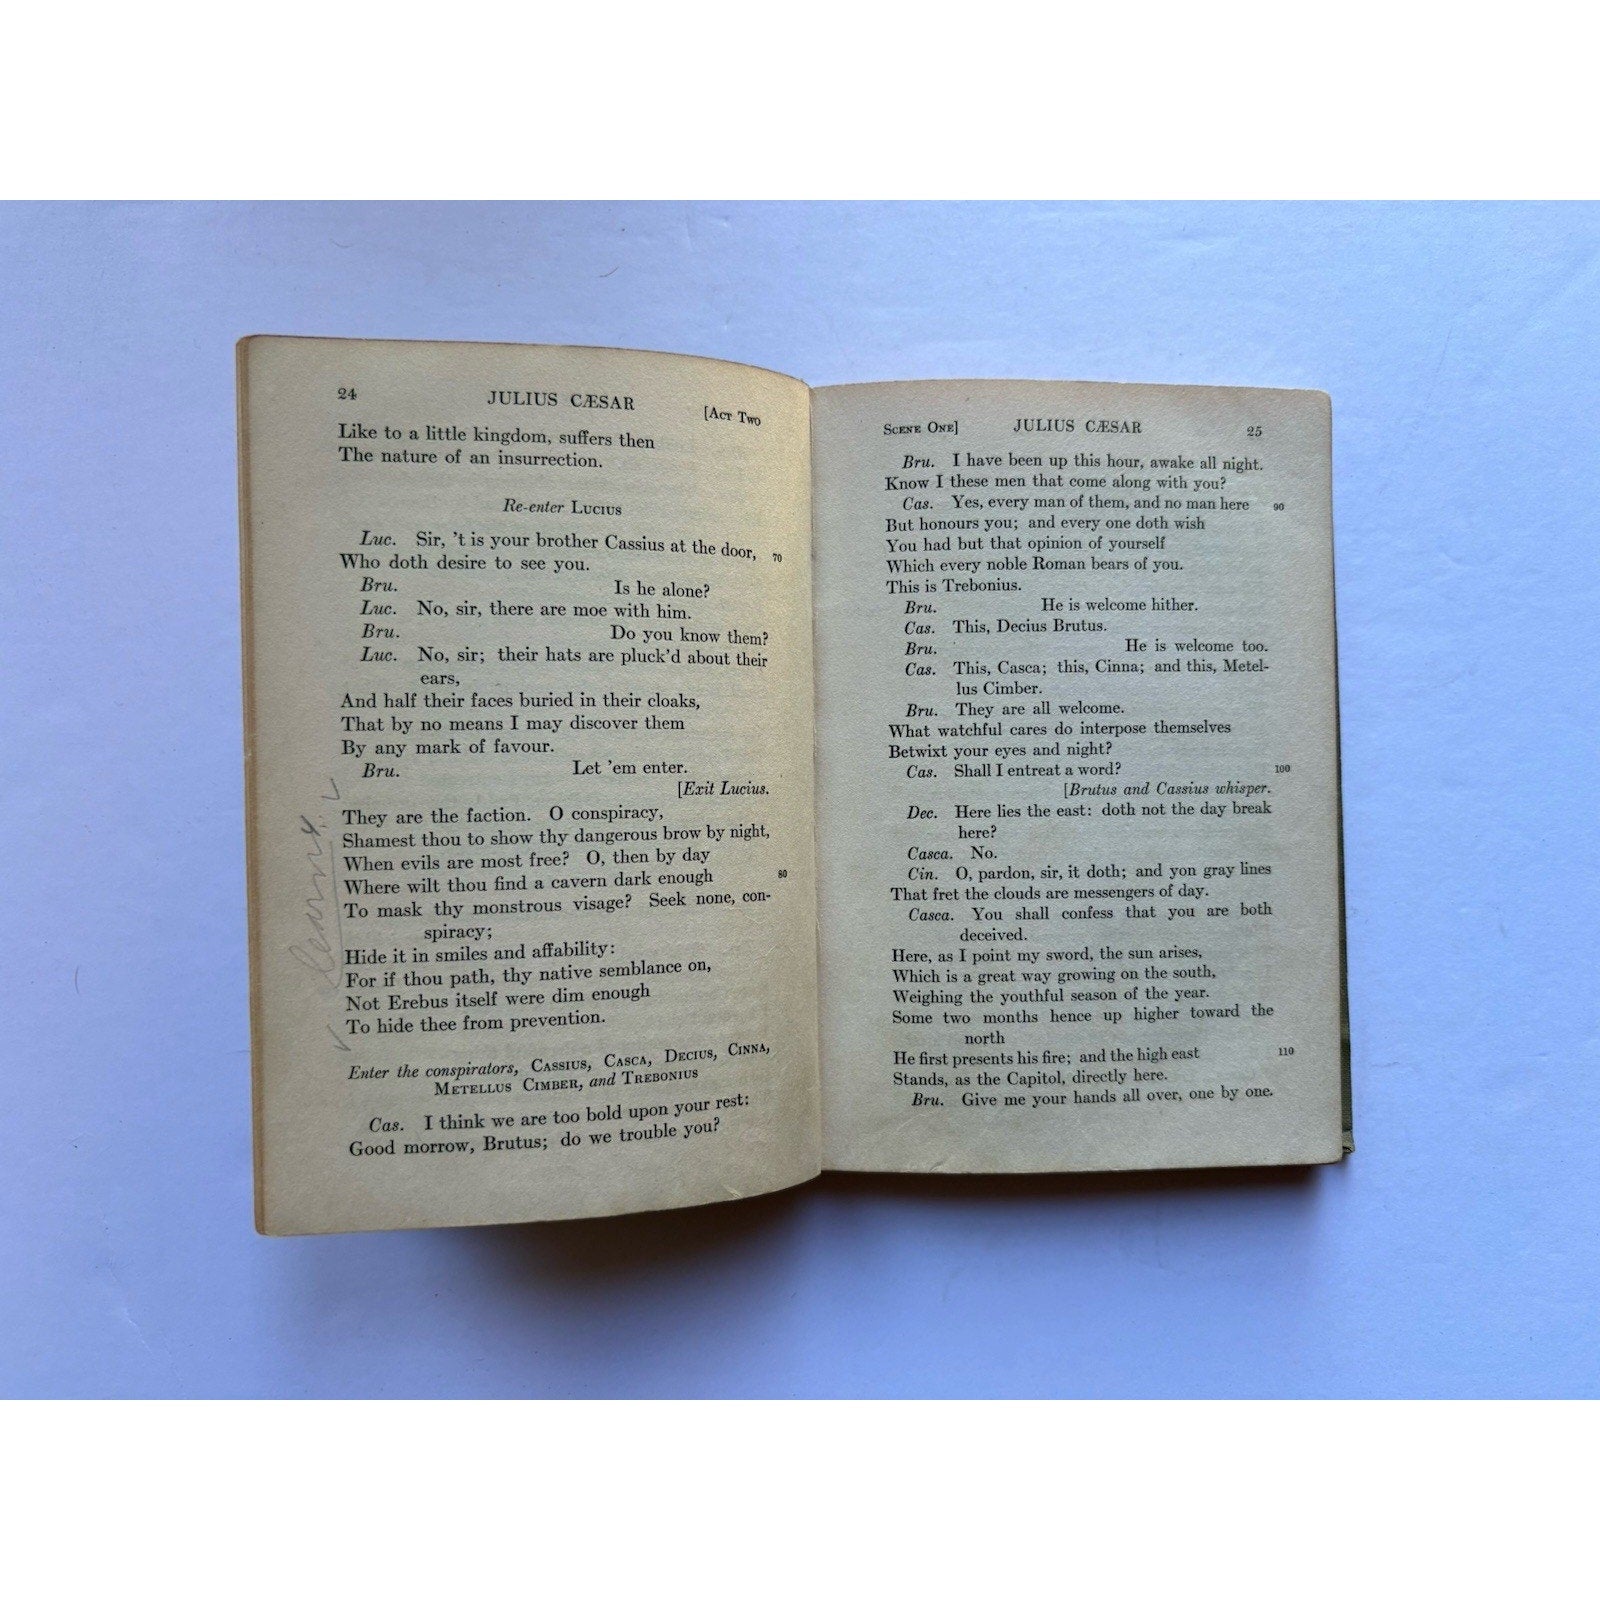 24 JULIUS CÆSAR [Act Two
Like to a little kingdom, suffers then
The nature of an insurrection.
Re-enter Lucius
Luc. Sir, 't is your brother Cassius at the door, 70
Who doth desire to see you.
Bru. Is he alone?
Luc. No, sir, there are moe with him.
Bru. Do you know them?
Luc. No, sir; their hats are pluck'd about their
ears,
And half their faces buried in their cloaks,
That by no means I may discover them
By any mark of favour.
Bru. Let 'em enter.
[Exit Lucius.
They are the faction. O conspiracy,
Shamest thou to show thy dangerous brow by night,
When evils are most free? O, then by day
Where wilt thou find a cavern dark enough 80
To mask thy monstrous visage? Seek none, con-
spiracy;
Hide it in smiles and affability:
For if thou path, thy native semblance on,
Not Erebus itself were dim enough
To hide thee from prevention.
Enter the conspirators, Cassius, Casca, Decius, Cinna,
Metellus Cimber, and Trebonius
Cas. I think we are too bold upon your rest:
Good morrow, Brutus; do we trouble you?
Scene One] JULIUS CÆSAR 25
Bru. I have been up this hour, awake all night.
Know I these men that come along with you?
Cas. Yes, every man of them, and no man here 90
But honours you; and every one doth wish
You had but that opinion of yourself
Which every noble Roman bears of you.
This is Trebonius.
Bru. He is welcome hither.
Cas. This, Decius Brutus.
Bru. He is welcome too.
Cas. This, Casca; this, Cinna; and this, Metel-
lus Cimber.
Bru. They are all welcome.
What watchful cares do interpose themselves
Betwixt your eyes and night?
Cas. Shall I entreat a word? 100
[Brutus and Cassius whisper.
Dec. Here lies the east: doth not the day break
here?
Casca. No.
Cin. O, pardon, sir, it doth; and yon gray lines
That fret the clouds are messengers of day.
Casca. You shall confess that you are both
deceived.
Here, as I point my sword, the sun arises,
Which is a great way growing on the south,
Weighing the youthful season of the year.
Some two months hence up higher toward the
north
He first presents his fire; and the high east 110
Stands, as the Capitol, directly here.
Bru. Give me your hands all over, one by one.